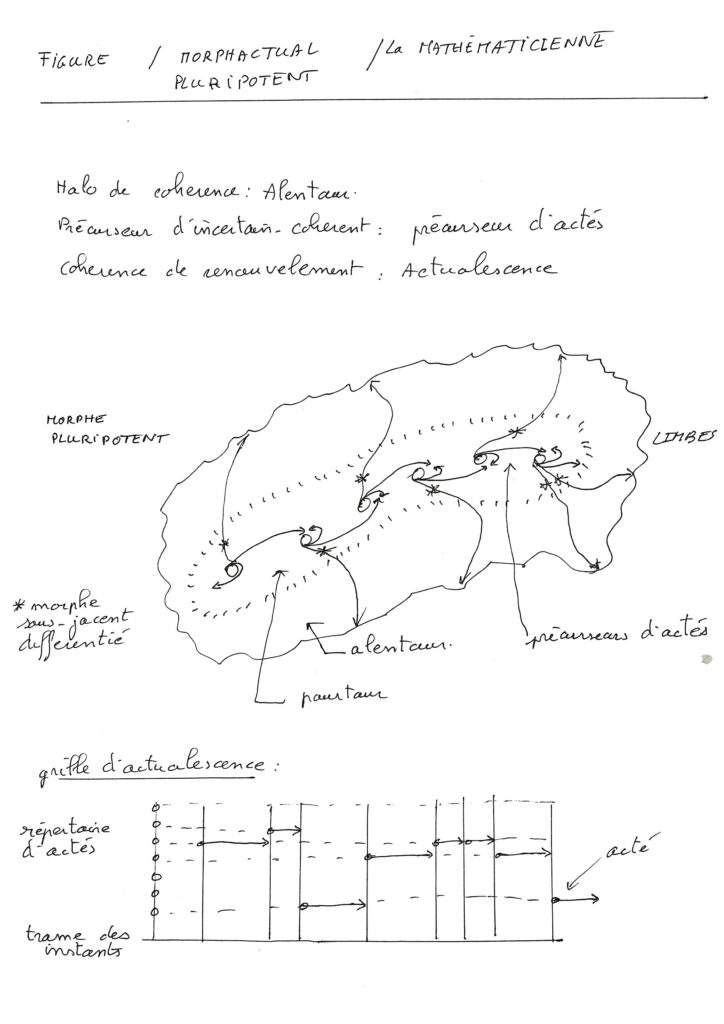 FIGURE / MORPHACTUAL / La MATHÉMATICIENNE
PLURIPOTENT
Halo de coherence : Alentour.
Précurseur d'incertain-coherent : précurseur d'actés
Coherence de renouvelement : Actualescence
MORPHE
PLURIPOTENT
LIMBES
* morphe
sous-jacent
differentié
alentour.
précurseurs d'actés
pourtour
grille d'actualescence :
répertoire
d'actés
acté
trame des
instants